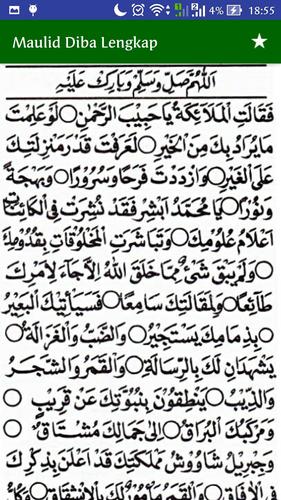 4% 18:55
Maulid Diba Lengkap
اَللّٰهُمَّ صَلِّ وَسَلِّمْ وَبَارِكْ عَلَيْهِ
فَقَالَتِ الْمَلَائِكَةُ يَا حَبِيْبَ الرَّحْمٰنِ ○ لَوْ عَلِمْتَ
مَا يُرَادُ بِكَ مِنَ الْخَيْرِ ○ لَعَرَفْتَ قَدْرَ مَنْزِلَتِكَ
عَلَى الْغَيْرِ ○ وَازْدَدْتَ فَرَحًا وَسُرُوْرًا ○ وَبَهْجَةً
وَنُوْرًا ○ يَا مُحَمَّدُ اَبْشِرْ فَقَدْ نُشِرَتْ فِى الْكَائِنَاتِ
اَعْلَامُ عُلُوْمِكَ ○ وَتَبَاشَرَتِ الْمَخْلُوْقَاتُ بِقُدُوْمِكَ
○ وَلَمْ يَبْقَ شَىْءٌ مِمَّا خَلَقَ اللهُ اِلَّا جَاءَ لِاَمْرِكَ
طَائِعًا ○ وَلِمَقَالَتِكَ سَامِعًا ○ فَسَيَأْتِيْكَ الْبَعِيْرُ
بِذِمَامِكَ يَسْتَجِيْرُ ○ وَالضَّبُّ وَالْغَزَالَةُ ○
يَشْهَدَانِ لَكَ بِالرِّسَالَةِ ○ وَالْقَمَرُ وَالشَّجَرُ
وَالذِّيْبُ ○ يَنْطِقُوْنَ بِنُبُوَّتِكَ عَنْ قَرِيْبٍ
○ وَمَرْكَبُكَ الْبُرَاقُ ○ اِلَى جَمَالِكَ مُشْتَاقٌ ○
وَجِبْرِيْلُ شَاوُوْشُ مَمْلَكَتِكَ قَدْ اَعْلَنَ بِذِكْرِكَ
فِى الْاٰفَاقِ ○ وَالْقَمَرُ مَأْمُوْرٌ لَكَ بِالْاِنْشِقَاقِ ○ وَكُلُّ